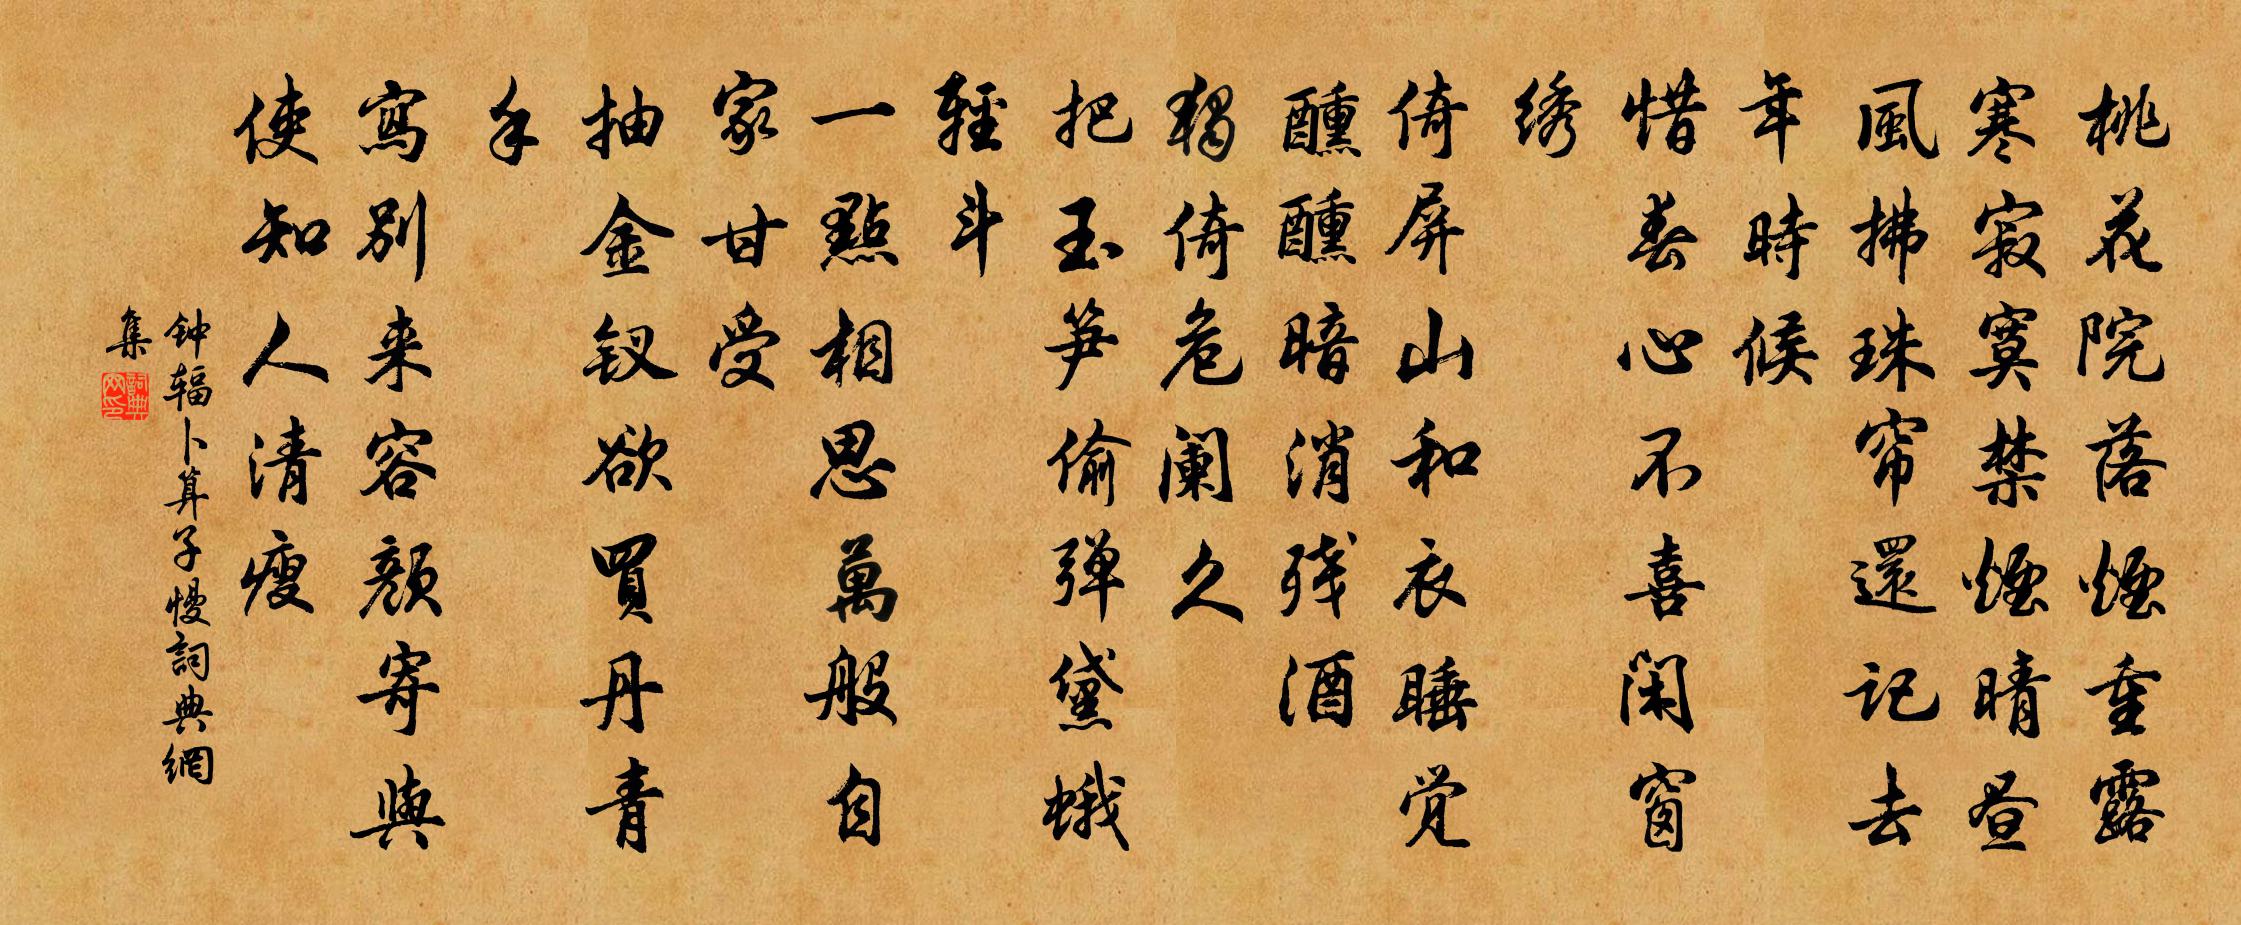 桃花院落煙重露
寒寂寞禁煙晴昼
風拂珠帘還记去
年時候
惜春心不喜闲窗
绣
倚屏山和衣睡觉
醺醺暗消残酒
独倚危阑久
把玉笋偷弹黛蛾
輕斗
一點相思萬般自
家甘受
抽金钗欲買丹青
手
寫别来容颜寄與
使知人清瘦
钟辐卜算子慢詞典網
集
詞典
网印